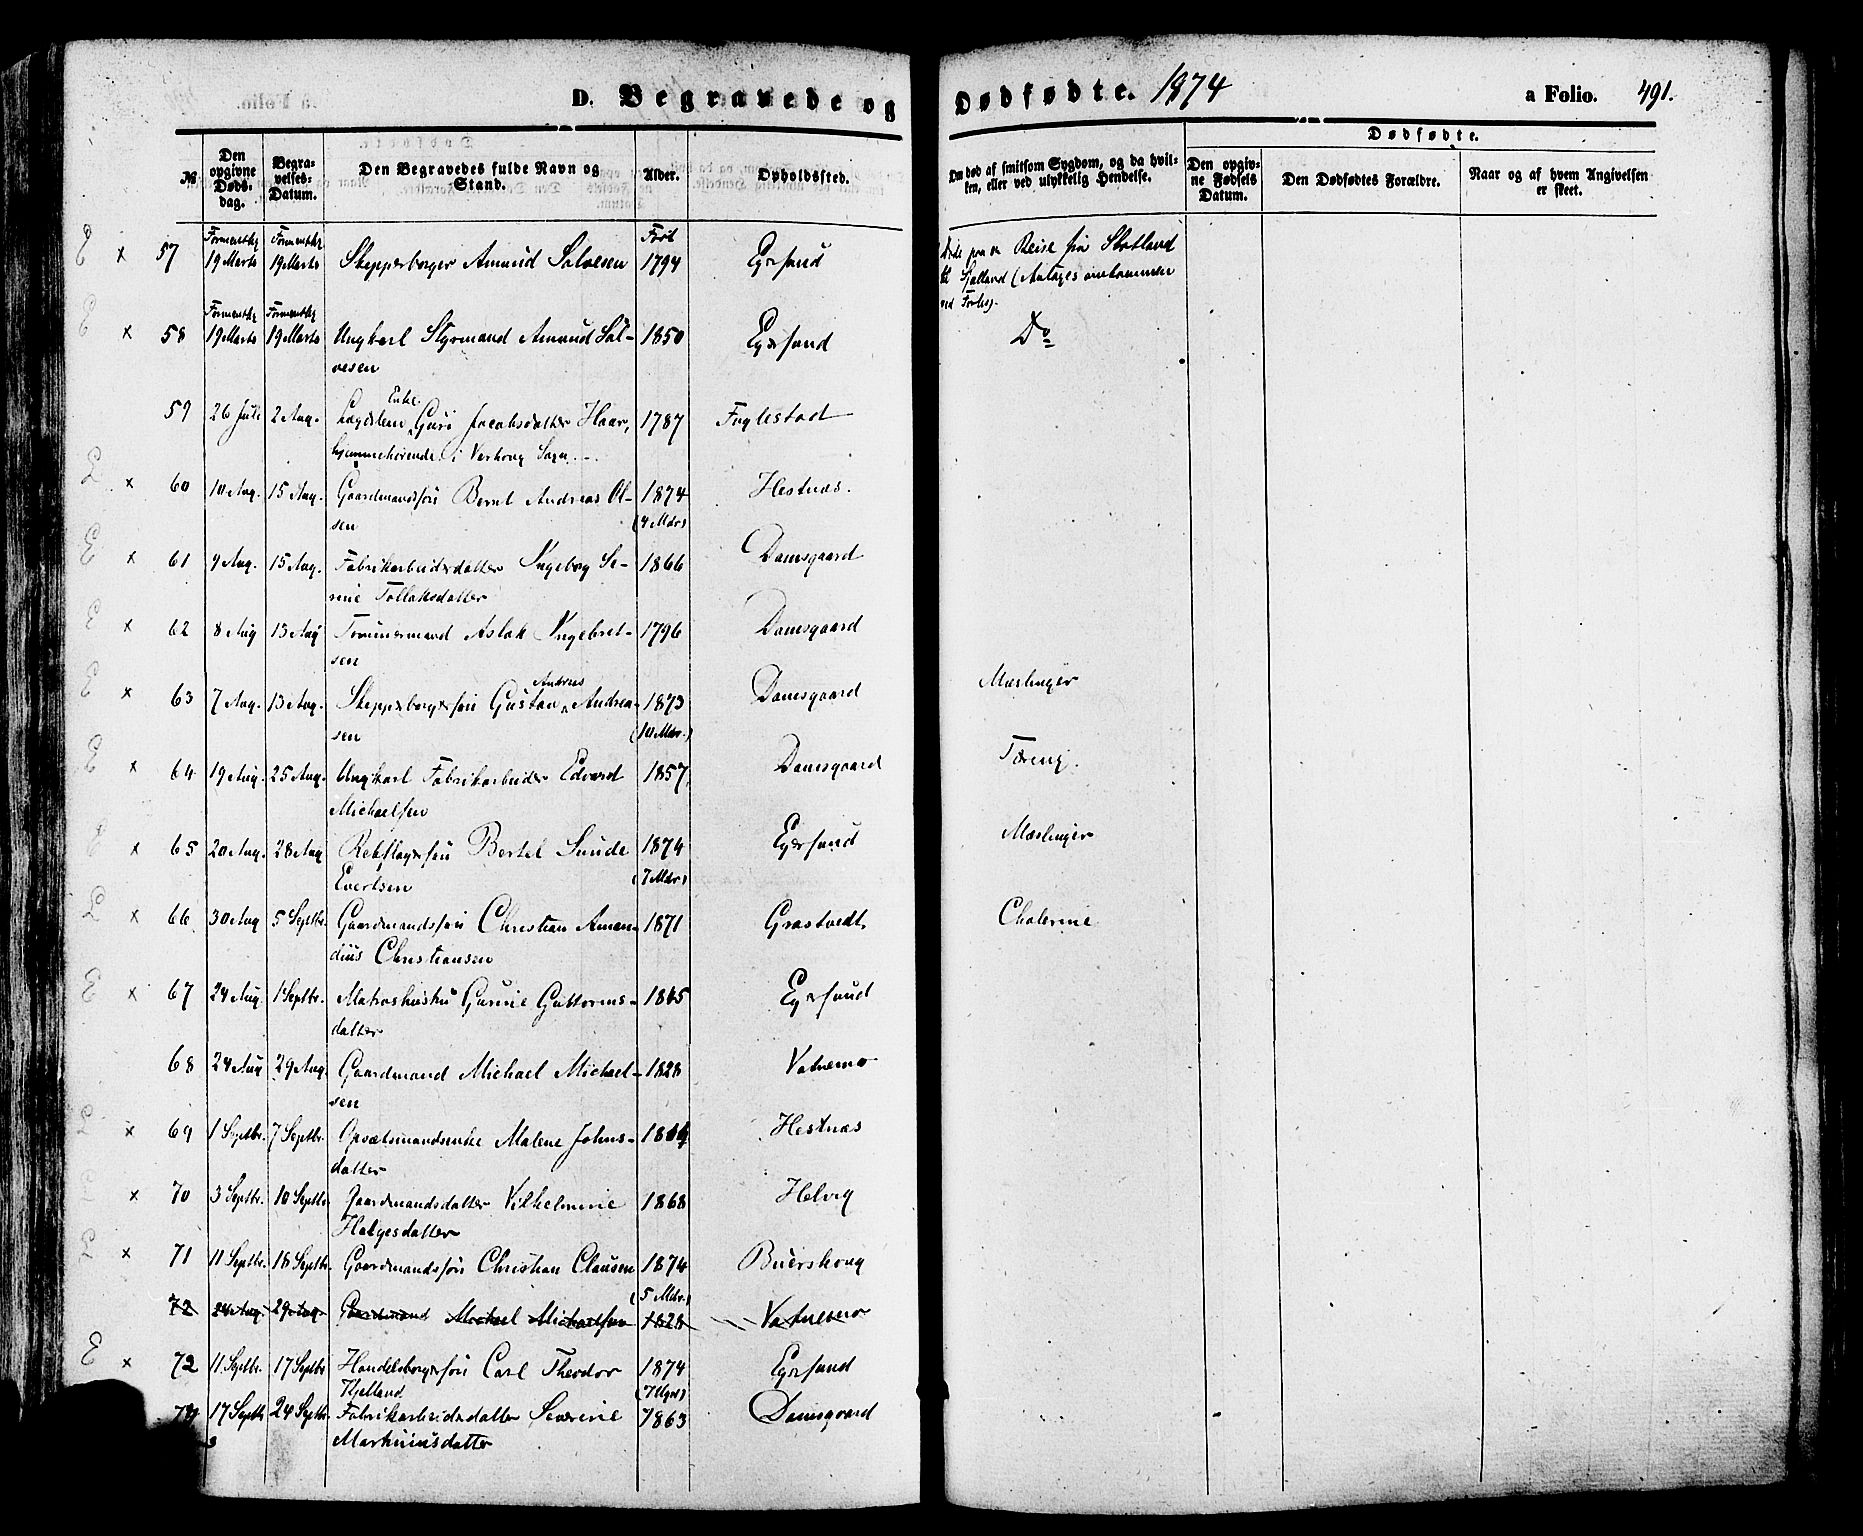 D. Begravede og Dødfødte. 1874 a Folio. 491.
№
Den opgivne Døds-dag.
Begra-velses-Datum.
Den Begravedes fulde Navn og Stand.
Alder.
Opholdssted.
Om død af smitsom Sygdom, og da hvil-ken, eller ved ulykkelig Hendelse.
Dødfødte.
Den opgiv-ne Fødsels Datum.
Den Dødfødtes Forældre.
Naar og af hvem Angivelsen er skeet.
Formentlig Formentlig Født
57 19 Marts 19 Marts Skipperborger Amund Salvesen 1794 Egersund Døde paa en Reise fra Skotland
til Sjælland (Antages omkommen
ved Forlis).
Formentlig Formentlig
58 19 Marts 19 Marts Ungkarl Styrmand Amund Sal- 1850 Egersund Do
vesen
Enke
59 26 Juli 2 Aug. Lægdslem Guri Jacobsdatter Haar, 1787 Fuglestad
hjemmehørende i Varhoug Sogn
60 10 Aug. 15 Aug. Gaardmandssøn Bernt Andreas Ol- 1874 Hestnæs.
sen (4 Mdr)
61 9 Aug. 15 Aug. Fabrikarbeiderdatter Ingeborg Se- 1866 Damsgaard
rine Tollaksdatter
62 8 Aug 13 Aug Tømmermand Aslak Ingebret- 1796 Damsgaard
sen
Andreas
63 7 Aug. 13 Aug. Skipperborgersøn Gustav Andrea- 1873 Damsgaard Mæslinger
sen (10 Mdr.)
64 19 Aug. 25 Aug. Ungkarl Fabrikarbeider Edvard 1857 Damsgaard Tæring.
Michaelsen
65 20 Aug. 28 Aug Rebslagersøn Bertel Sunde 1874 Egersund Mæslinger
Evertsen (7 Mdr)
66 30 Aug 5 Septbr. Gaardmandssøn Christian Aman- 1871 Grastvedt. Cholerine
dius Christiansen
67 24 Aug. 1 Septbr. Matroshustru Gurine Guttorms- 1845 Egersund
datter
68 24 Aug 29 Aug. Gaardmand Michael Michael- 1828 Vatnemo
sen
69 1 Septbr. 7 Septbr. Opsætsmandsenke Malene Johns- 1804 Hestnæs
datter
70 3 Septbr. 10 Septbr Gaardmandsdatter Vilhelmine 1868 Helvig
Helgesdatter
71 11 Septbr. 18 Septbr. Gaardmandssøn Christian Clausen 1874 Buerskoug
(5 Mdr.)
72 24 Aug. 29 Aug. Gaardmand Michael Michaelsen 1828 Vatnemo
72 11 Septbr. 17 Septbr Handelsborgersøn Carl Theodor 1874 Egersund
Kjelland (7 Uger)
73 17 Septbr 24 Septbr. Fabrikarbeiderdatter Severine 1863 Damsgaard
Markuiusdatter